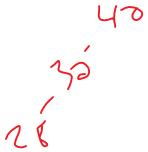 40
30
28